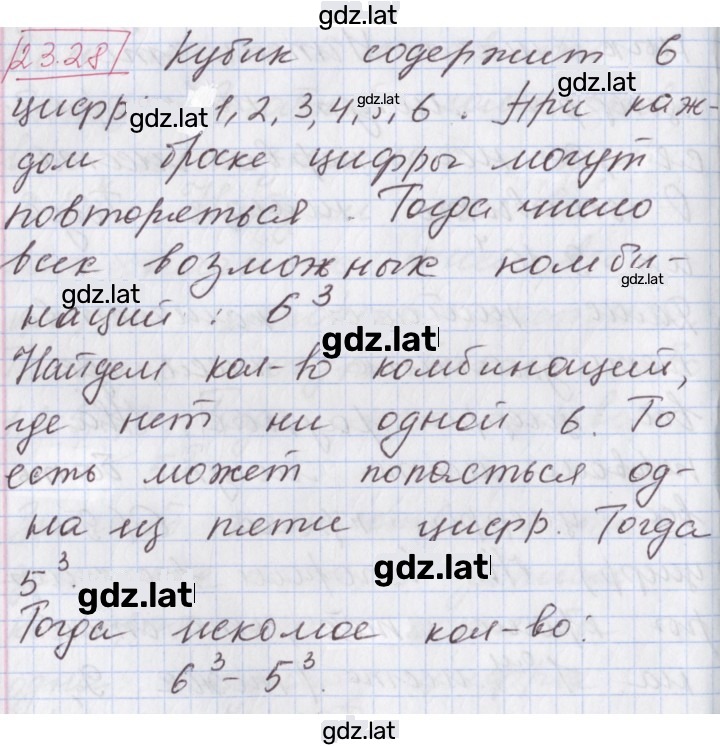 gdz.lat
23.28 Кубик содержит 6
gdz.lat
цифр: 1, 2, 3, 4, 5, 6. При каж-
gdz.lat
gdz.lat
дом броске цифры могут
повторяться. Тогда число
всех возможных комби-
gdz.lat
gdz.lat
наций: 6³
gdz.lat
Найдем кол-во комбинаций,
где нет ни одной 6. То
есть может попасться од-
на из пяти цифр. Тогда
gdz.lat
5³.
gdz.lat
Тогда искомое кол-во:
6³ - 5³.
gdz.lat